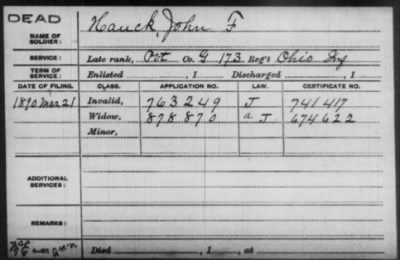 DEAD
NAME OF SOLDIER: Hauck, John F
SERVICE: Late rank, Pvt Co. G 173 Reg't Ohio Inf
TERM OF SERVICE: Enlisted , 1 Discharged , 1
DATE OF FILING. CLASS. APPLICATION NO. LAW. CERTIFICATE NO.
1890 Mar 21 Invalid, 763249 J 741417
Widow, 878870 a J 674622
Minor,
ADDITIONAL SERVICES:
REMARKS:
Died , 1 , at